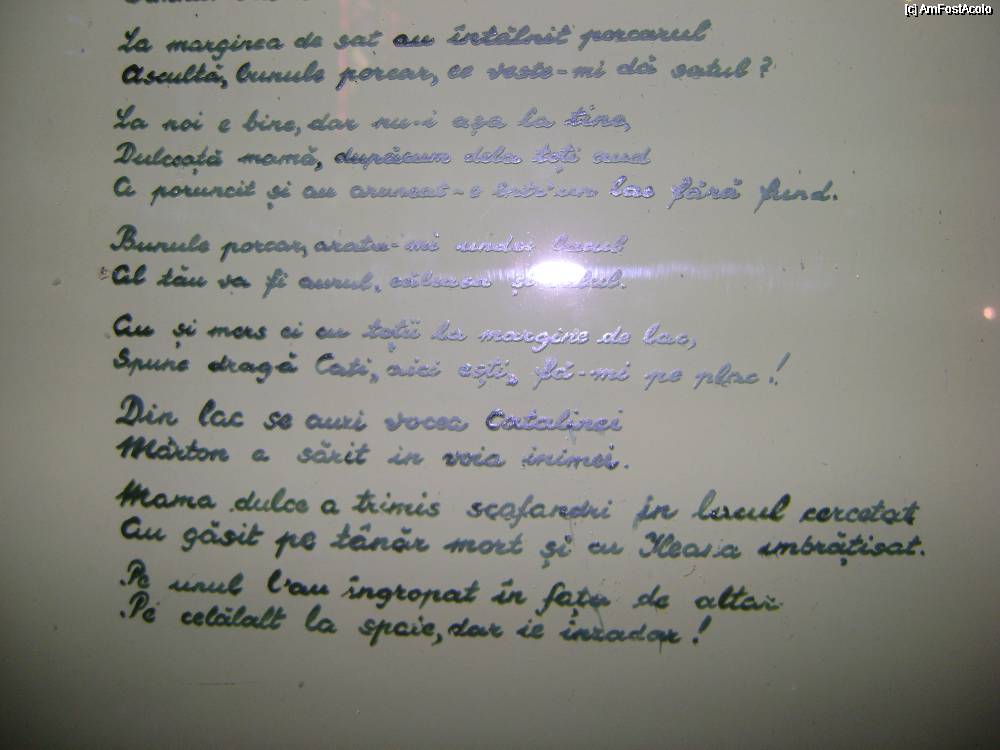 [c] AmFostAcolo
La marginea de sat au întâlnit porcarul
Ascultă, bunule porcar, ce veste-mi dă satul?
La noi e bine, dar nu-i așa la tine,
Dulceață mamă, dupăcum dela toți aud
A poruncit și au aruncat-o într'un lac fără fund.
Bunule porcar, arată-mi unde-i lacul
Al tău va fi aurul, căleașa și
Au și mers ei cu toții la margine de lac,
Spune dragă Cati, aici ești, fă-mi pe plac!
Din lac se auzi vocea Catalinei
Márton a sărit in voia inimei.
Mama dulce a trimis scafandri în lacul cercetat
Au găsit pe tânăr mort și cu Ileana imbrățisat.
Pe unul l'au îngropat în fața de altar
Pe celălalt la spaie, dar ie inzadar!